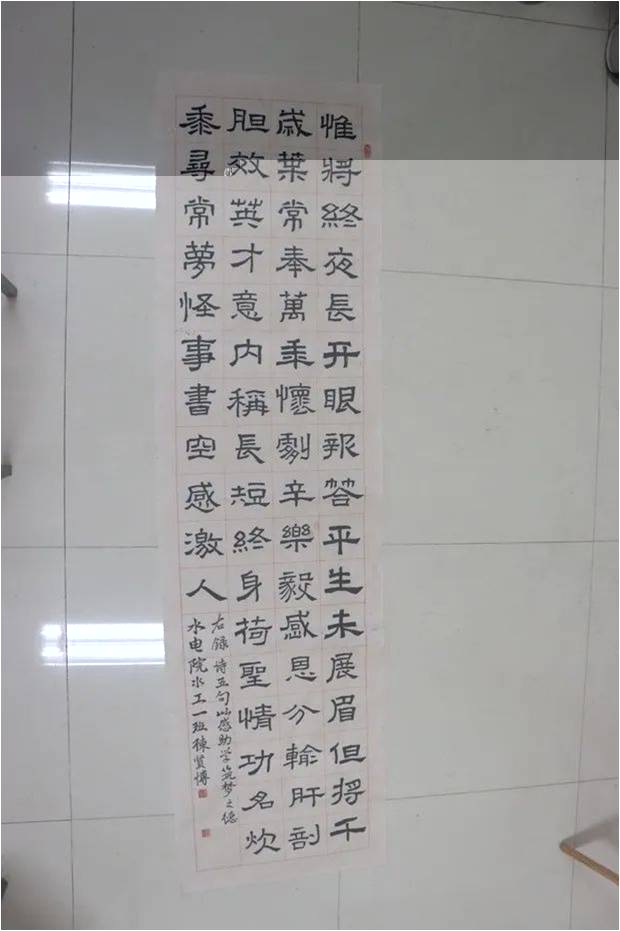 惟將終夜長开眼報答平生未展眉但將千
歲葉常奉萬乘懷劇辛樂毅感恩分輸肝剖
胆效英才意内稱長短終身荷聖情功名炊
黍尋常夢怪事書空感激人
右録诗五句以感助学筑梦之德
水电院水工一班陳博